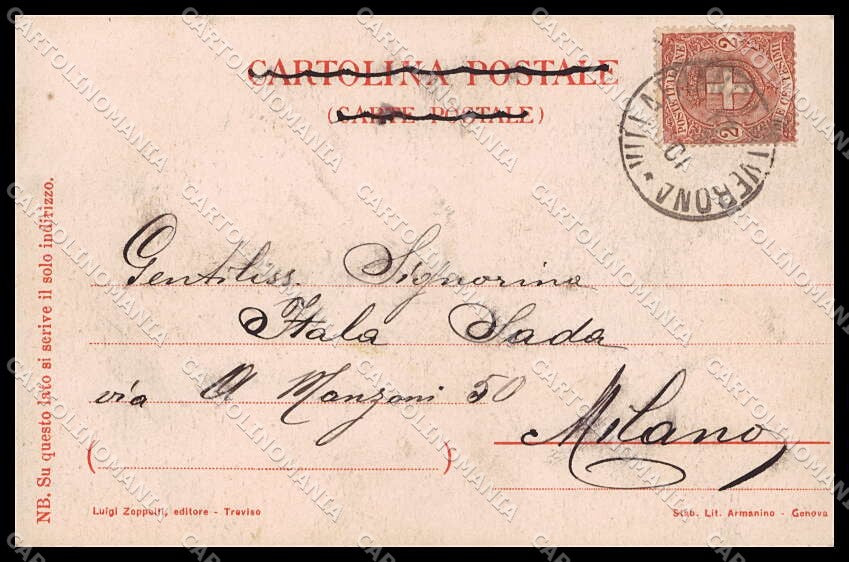 CARTOLINA POSTALE
(CARTE POSTALE)
VERONA
Gentiliss. Signorina
Itala Sada
via A Manzoni 50
Milano
NB. Su questo lato si scrive il solo indirizzo.
Luigi Zoppelli, editore - Treviso
Stab. Lit. Armanino - Genova
CARTOLINOMANIA